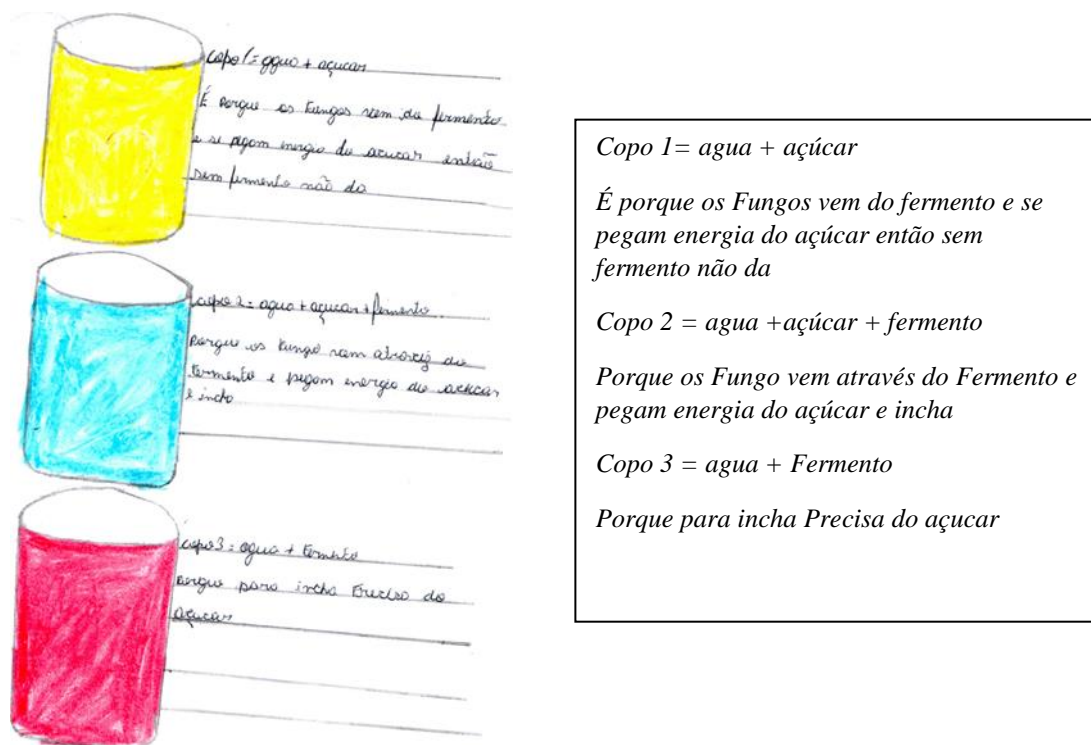 copo 1= agua + açucar
É porque os Fungos vem do fermento
e se pegam energia do acucar então
sem fermento não da
copo 2= agua + açucar + fermento
Porque os Fungo vem atraveiz do
Fermento e pegam energia do acucar
e incha
copo 3= agua + Fermento
Porque para incha Precisa do
açucar
Copo 1= agua + açúcar
É porque os Fungos vem do fermento e se
pegam energia do açúcar então sem
fermento não da
Copo 2 = agua +açúcar + fermento
Porque os Fungo vem através do Fermento e
pegam energia do açúcar e incha
Copo 3 = agua + Fermento
Porque para incha Precisa do açucar